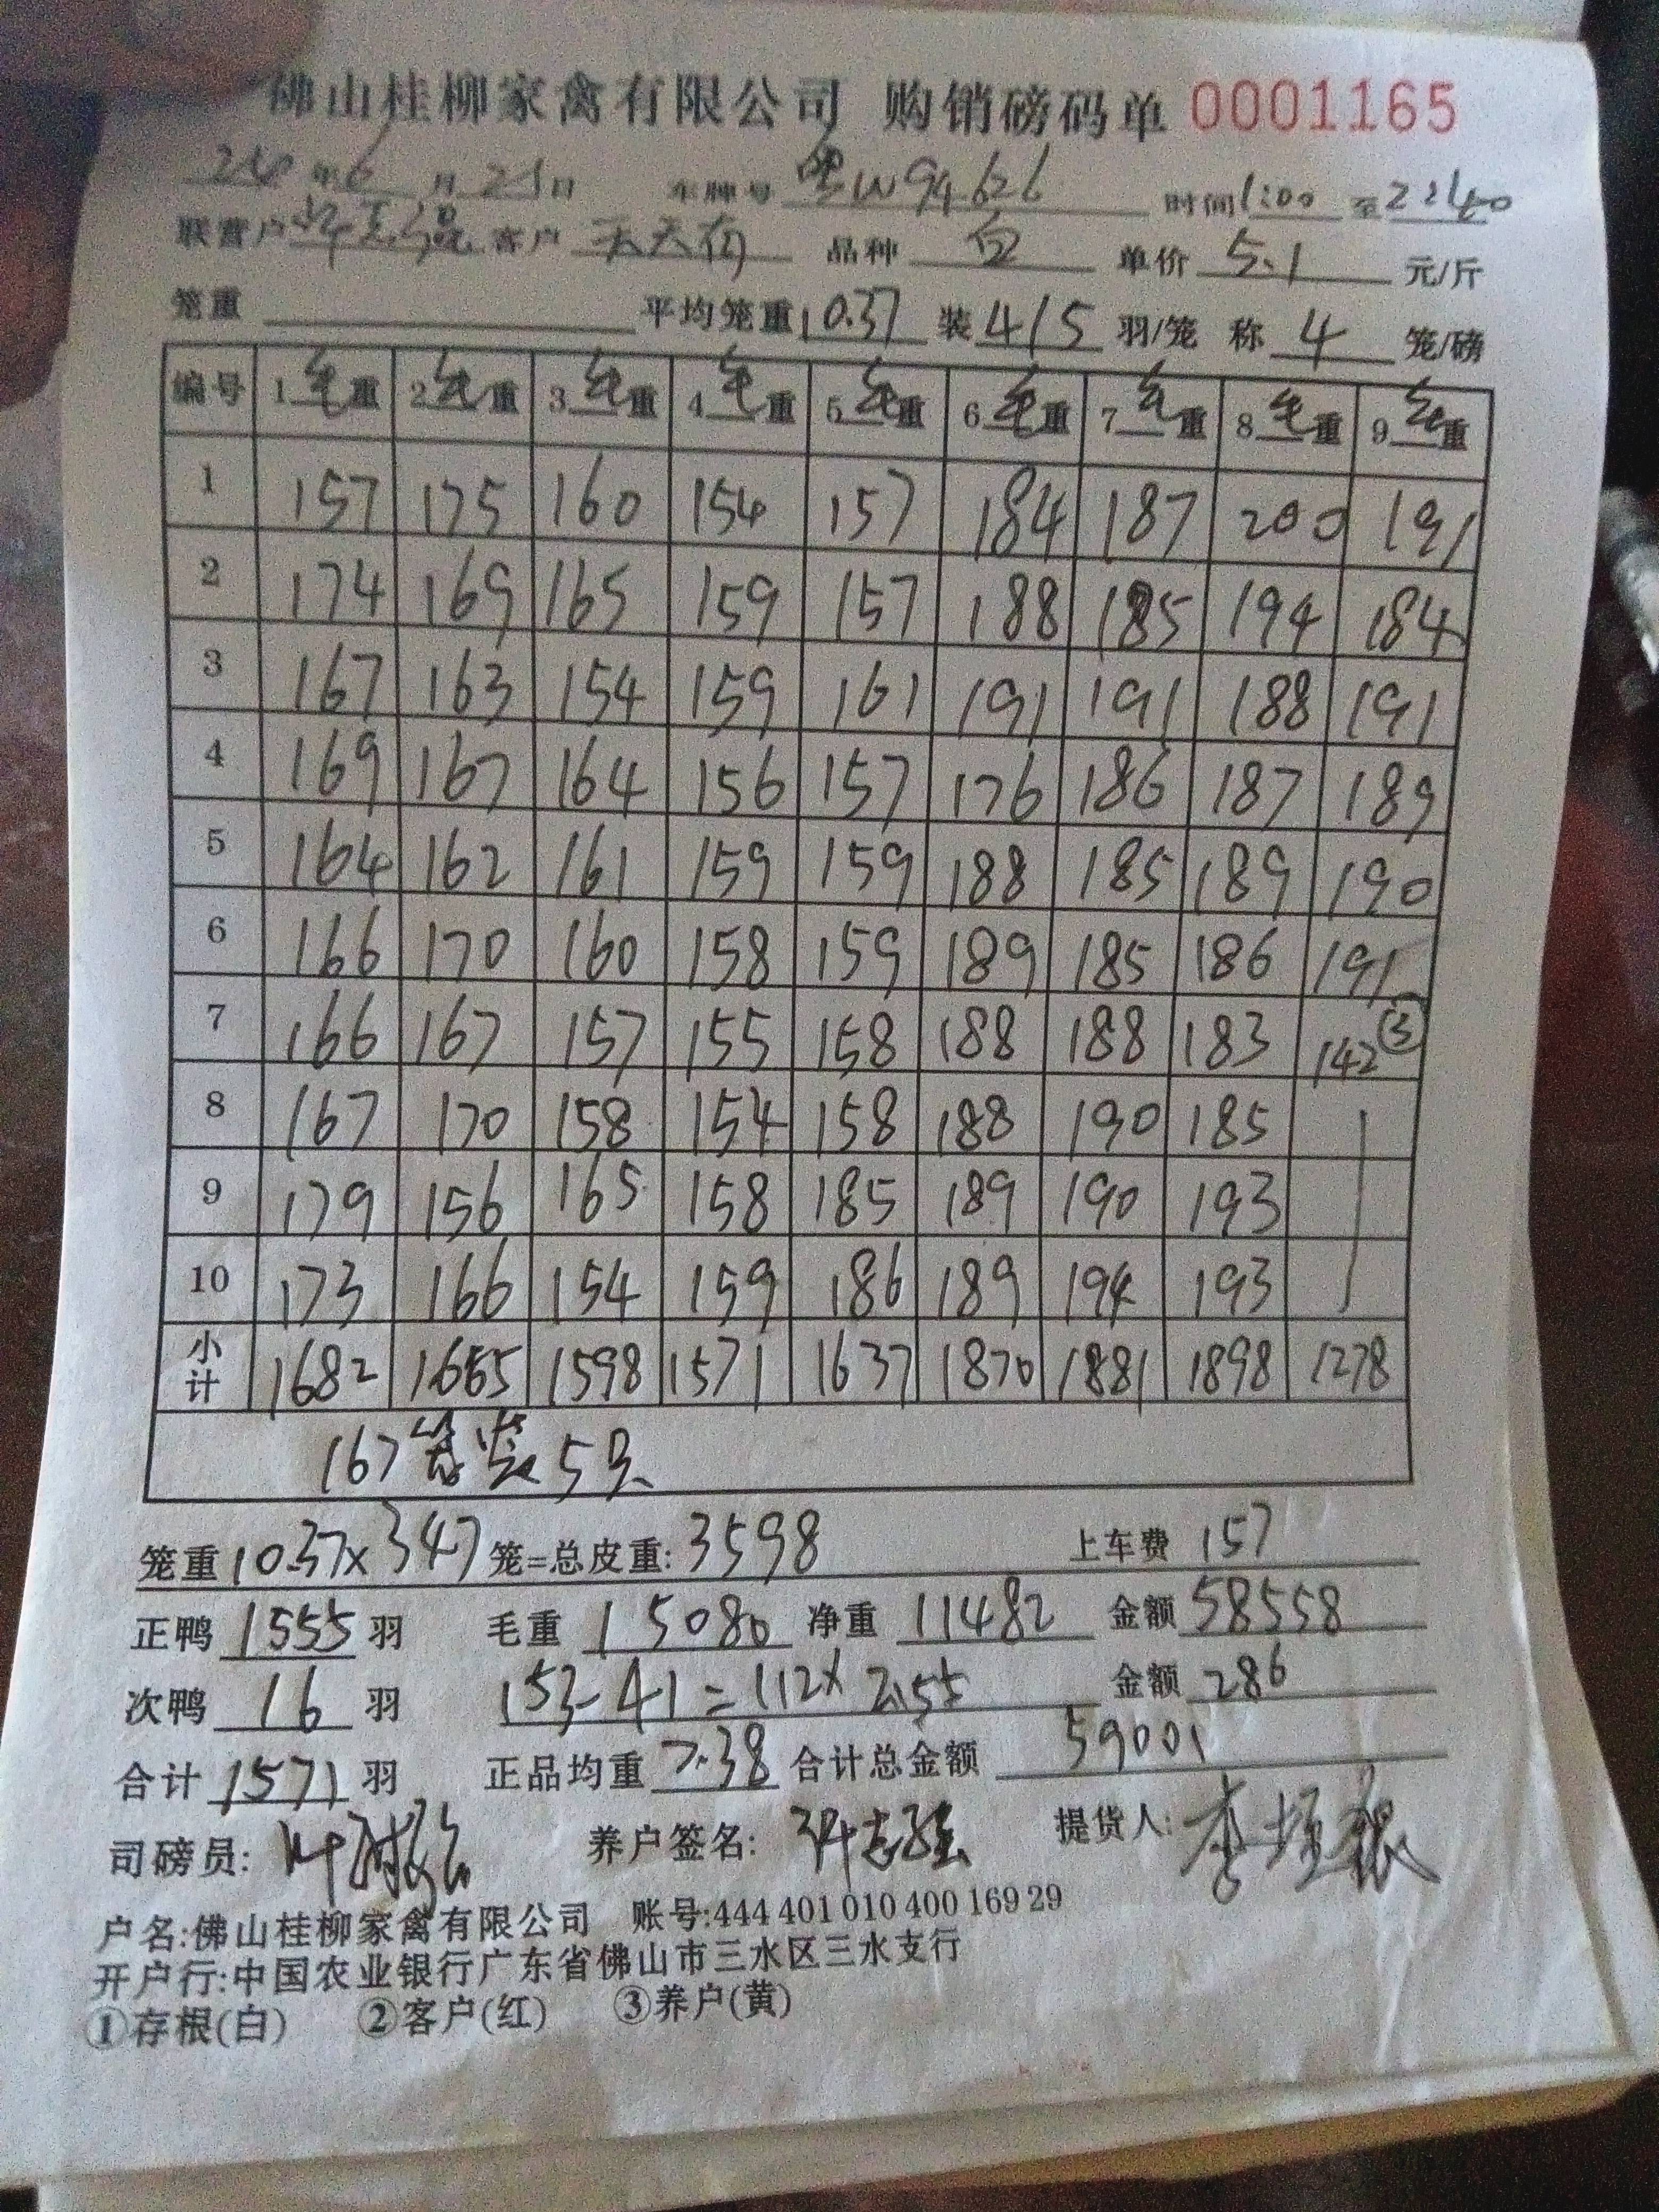 佛山桂柳家禽有限公司 购销磅码单 0001165
年6月25日 车牌号 W94626 时间1:00至22:40
联营户 客户 天天有 品种 白 单价 5.1 元/斤
笼重 平均笼重10.37 装4/5羽/笼 称4笼/磅
编号 1毛重 2毛重 3毛重 4毛重 5毛重 6毛重 7毛重 8毛重 9毛重
1 157 175 160 154 157 184 187 200 191
2 174 169 165 159 157 188 185 194 184
3 167 163 154 159 161 191 191 188 191
4 169 167 164 156 157 176 186 187 189
5 164 162 161 159 159 188 185 189 190
6 166 170 160 158 159 189 185 186 191
7 166 167 157 155 158 188 188 183 142③
8 167 170 158 154 158 188 190 185
9 179 156 165 158 185 189 190 193
10 173 166 154 159 186 189 194 193
小计 1682 1665 1598 1571 1637 1870 1881 1898 1278
167笼装5只
笼重10.37×347笼=总皮重:3598 上车费 157
正鸭1555羽 毛重 15080 净重 11482 金额58558
次鸭16羽 153-41=112×2.55 金额286
合计1571羽 正品均重7.38 合计总金额 59001
司磅员: 养户签名: 提货人:
户名:佛山桂柳家禽有限公司 账号:444 401 010 400 169 29
开户行:中国农业银行广东省佛山市三水区三水支行
①存根(白) ②客户(红) ③养户(黄)